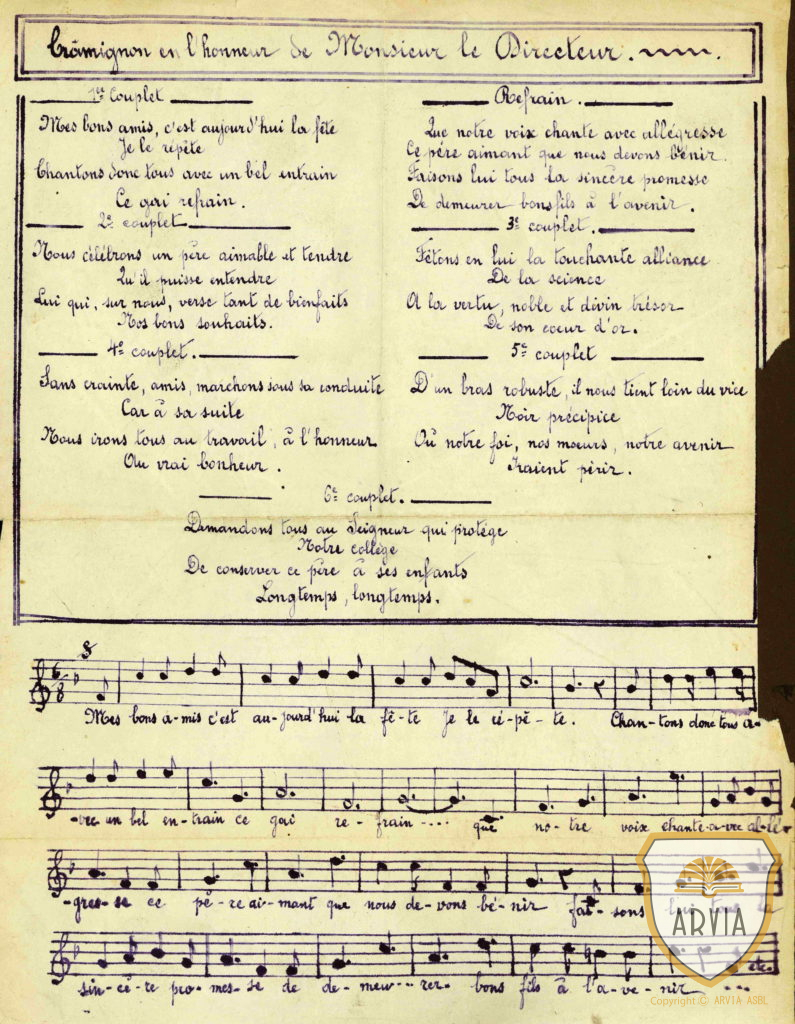 Crâmignon en l'honneur de Monsieur le Directeur.
1er Couplet
Mes bons amis, c'est aujourd'hui la fête
Je le répète
Chantons donc tous avec un bel entrain
Ce gai refrain.
Refrain.
Que notre voix chante avec allégresse
Ce père aimant que nous devons bénir.
Faisons lui tous la sincère promesse
De demeurer bons fils à l'avenir.
2e couplet
Nous célébrons un père aimable et tendre
Qu'il puisse entendre
Lui qui, sur nous, verse tant de bienfaits
Nos bons souhaits.
3e couplet.
Fêtons en lui la touchante alliance
De la science
A la vertu, noble et divin trésor
De son coeur d'or.
4e couplet.
Sans crainte, amis, marchons sous sa conduite
Car à sa suite
Nous irons tous au travail, à l'honneur
Au vrai bonheur.
5e couplet
D'un bras robuste, il nous tient loin du vice
Noir précipice
Où notre foi, nos moeurs, notre avenir
Iraient périr.
6e couplet.
Demandons tous au Seigneur qui protège
Notre collège
De conserver ce père à ses enfants
Longtemps, longtemps.
6 8
Mes bons a-mis c'est au-jourd'hui la fê-te Je le ré-pè-te. Chan-tons donc tous a-
-vec un bel en-train ce gai re-frain.... que no-tre voix chante-a-vec al-lé-
-gres-se ce pè-re ai-mant que nous de-vons bé-nir fai-sons lui tous la
sin-cè-re pro-mes-se de de-meu---rer bons fils à l'a-ve-nir ... etc.
ARVIA
Copyright © ARVIA ASBL